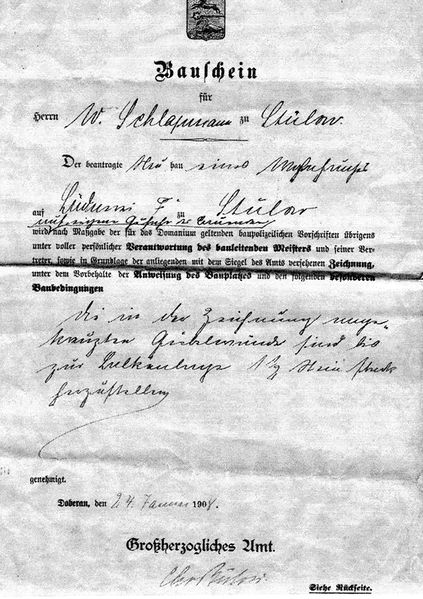 Bauschein
für
Herrn W. Schlapmann zu Stülow
Der beantragte Neubau eines Wohnhauses
auf zu Stülow
auf eigene
wird nach Maßgabe der für das Domanium geltenden baupolizeilichen Vorschriften übrigens
unter voller persönlicher Verantwortung des bauleitenden Meisters und seiner Ver-
treter, sowie in Grundlage der anliegenden mit dem Siegel des Amts versehenen Zeichnung,
unter dem Vorbehalte der Anweisung des Bauplatzes und den folgenden besonderen
Baubedingungen
Die in der Zeichnung ange-
kreuzten Giebelwände sind bis
zur Balkenlage 1½ Stein stark
herzustellen
genehmigt.
Doberan, den 24. Januar 1908.
Großherzogliches Amt.
Siehe Rückseite.